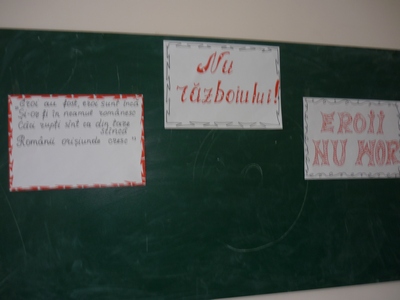 "Eroi au fost, eroi sunt încă
Și-or fi în neamul românesc
Căci rupți sînt ca din tare
stîncă
Românii orișiunde cresc"
Nu
războiului!
EROII
NU MOR